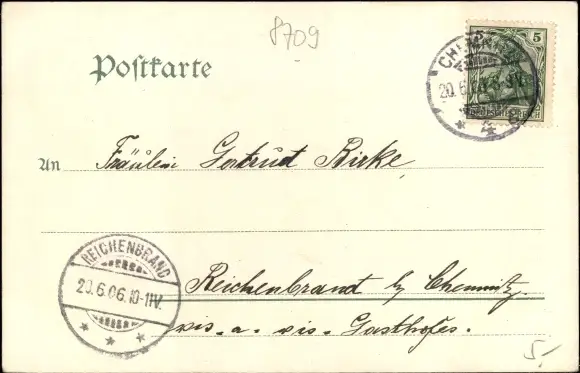 8709
5 5
CHEMNITZ
20.6.
Postkarte
An Fräulein Gertrud Birke,
REICHENBRAND
20.6.06.10-11V.
Reichenbrand b/ Chemnitz.
vis-a-vis Gasthofes.
5,-